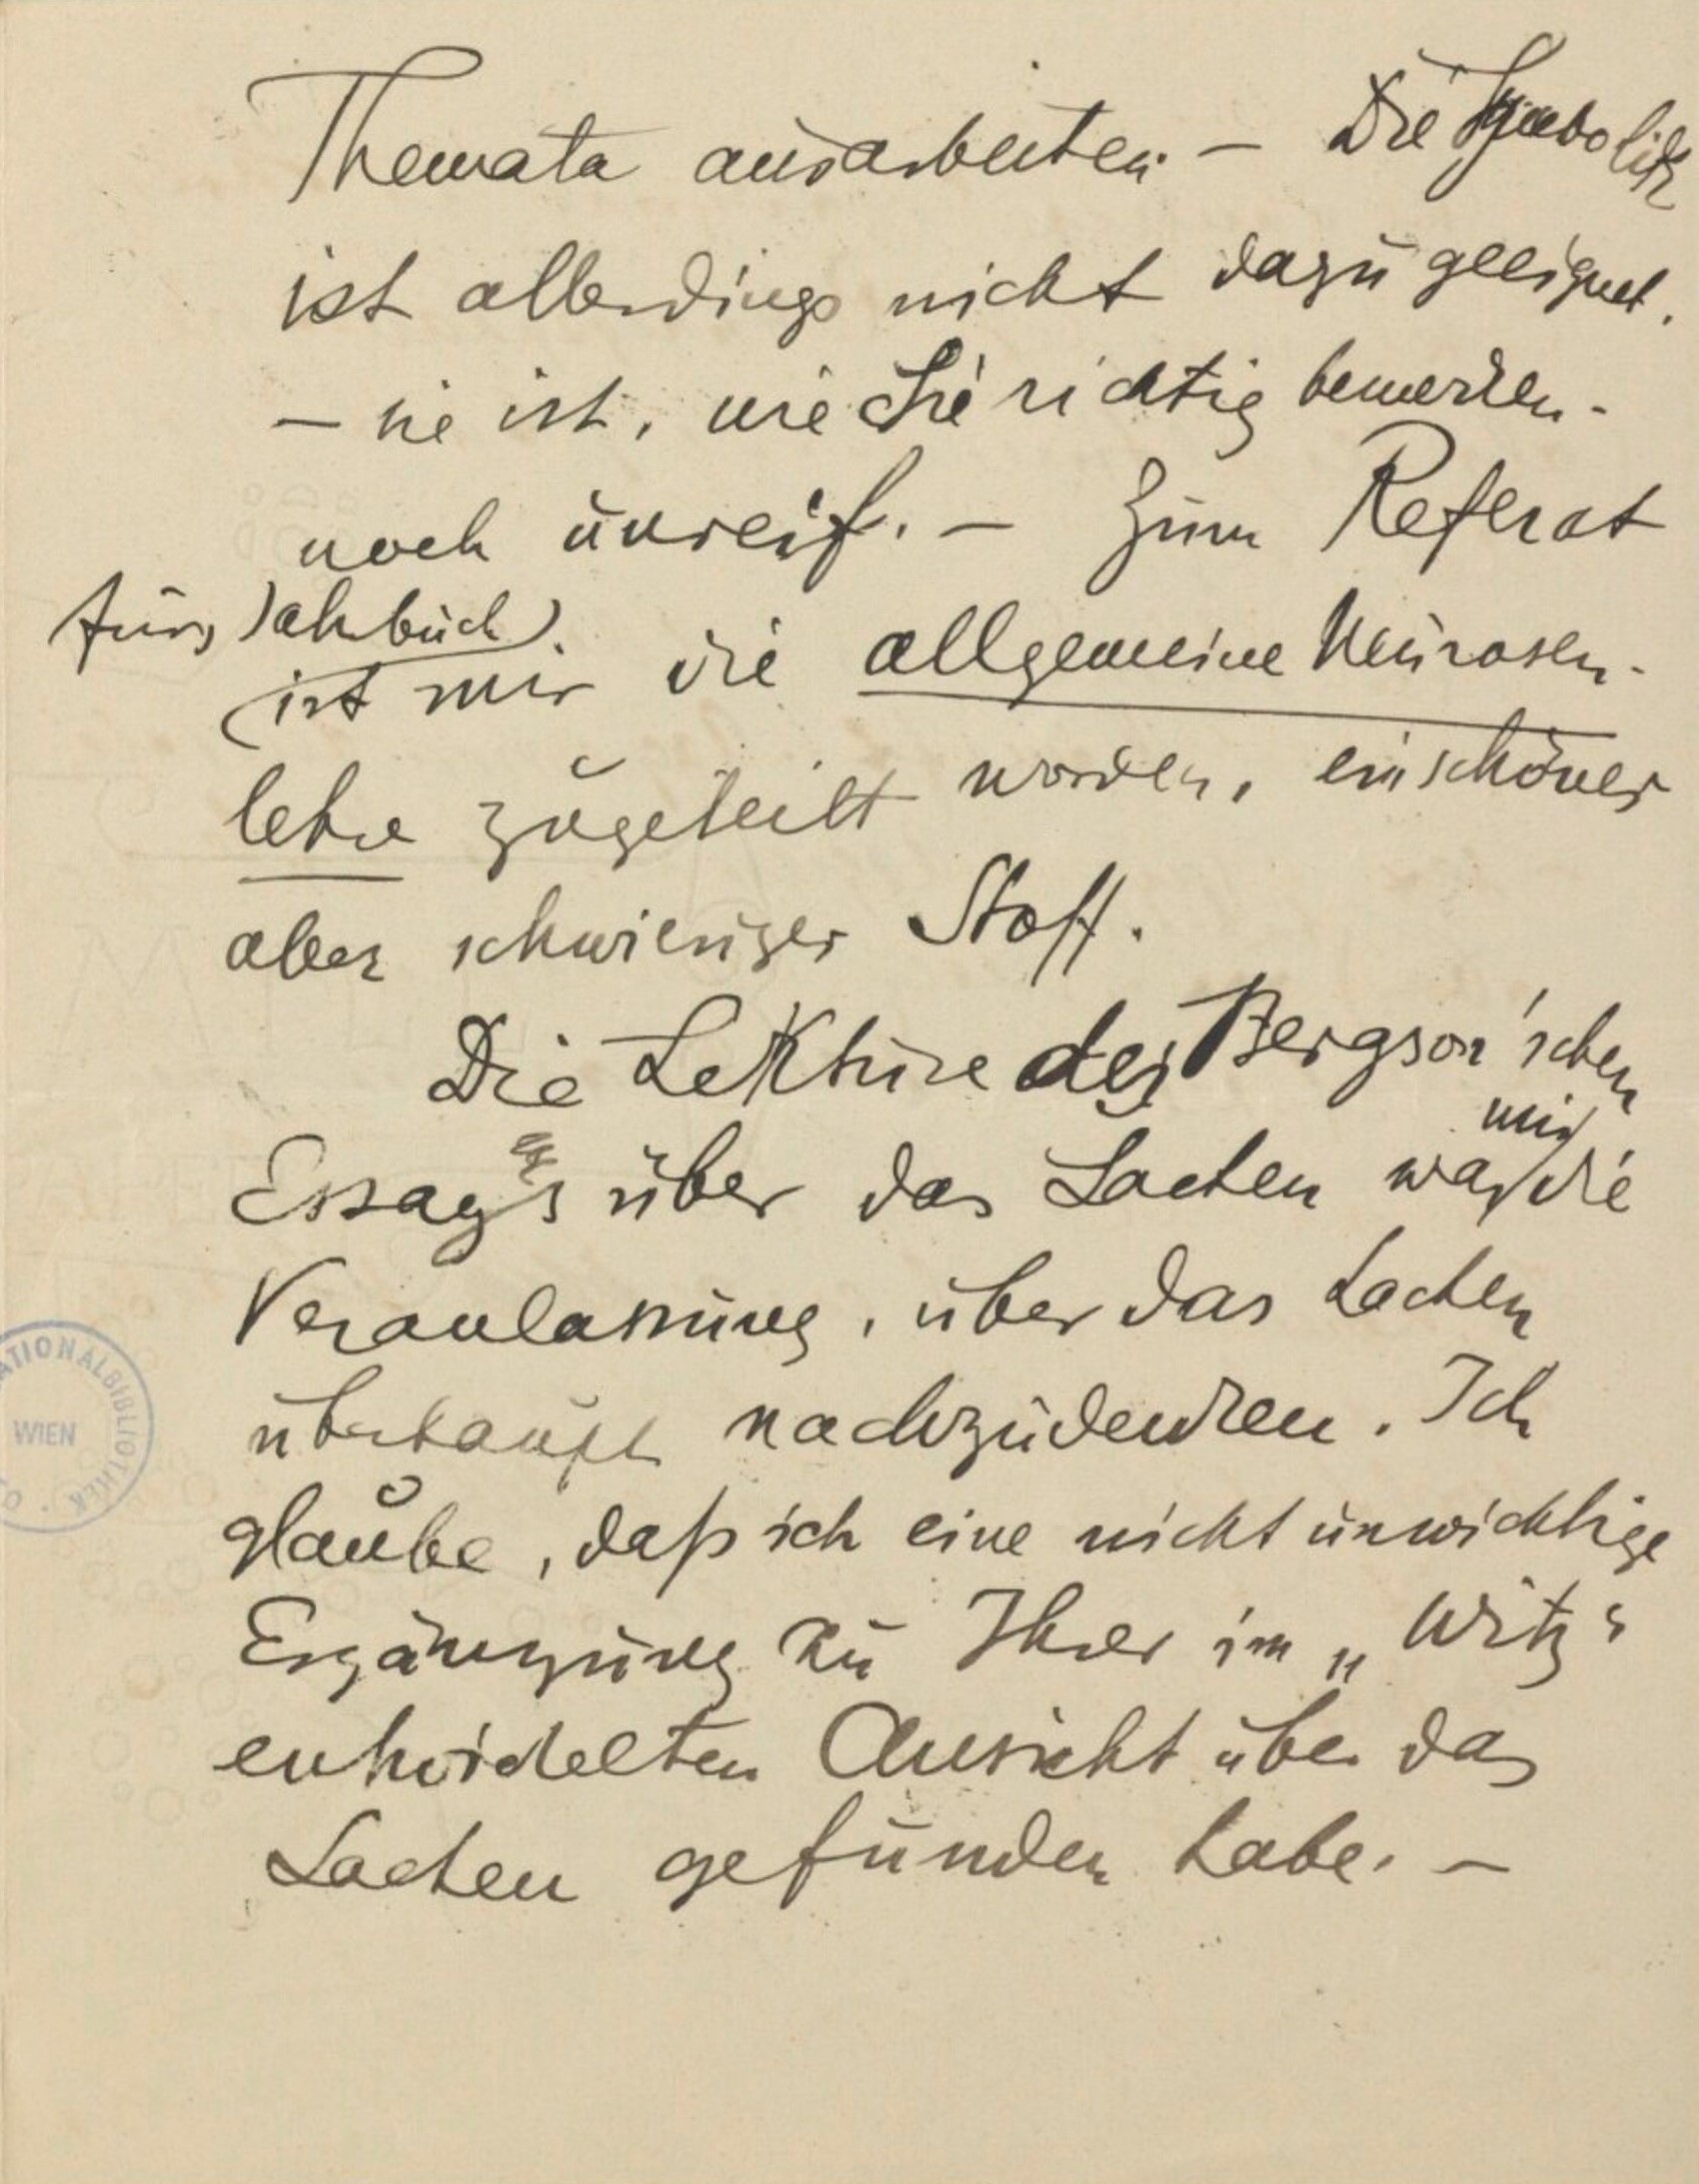 Themata ausarbeiten. – Die Symbolik
ist allerdings nicht dazu geeignet.
– sie ist, wie Sie richtig bemerken –
noch unreif. – Zum Referat
fürs Jahrbuch
ist mir die allgemeine Neurosen-
lehre zugeteilt worden, ein schöner
aber schwieriger Stoff.
Die Lektüre des Bergson'schen
mir
Essay's über das Lachen war die
Veranlassung, über das Lachen
überhaupt nachzudenken. Ich
glaube, daß ich eine nicht unwichtige
Ergänzung zu Ihrer im „Witz“
entwickelten Ansicht über das
Lachen gefunden habe. –
NATIONALBIBLIOTHEK
WIEN